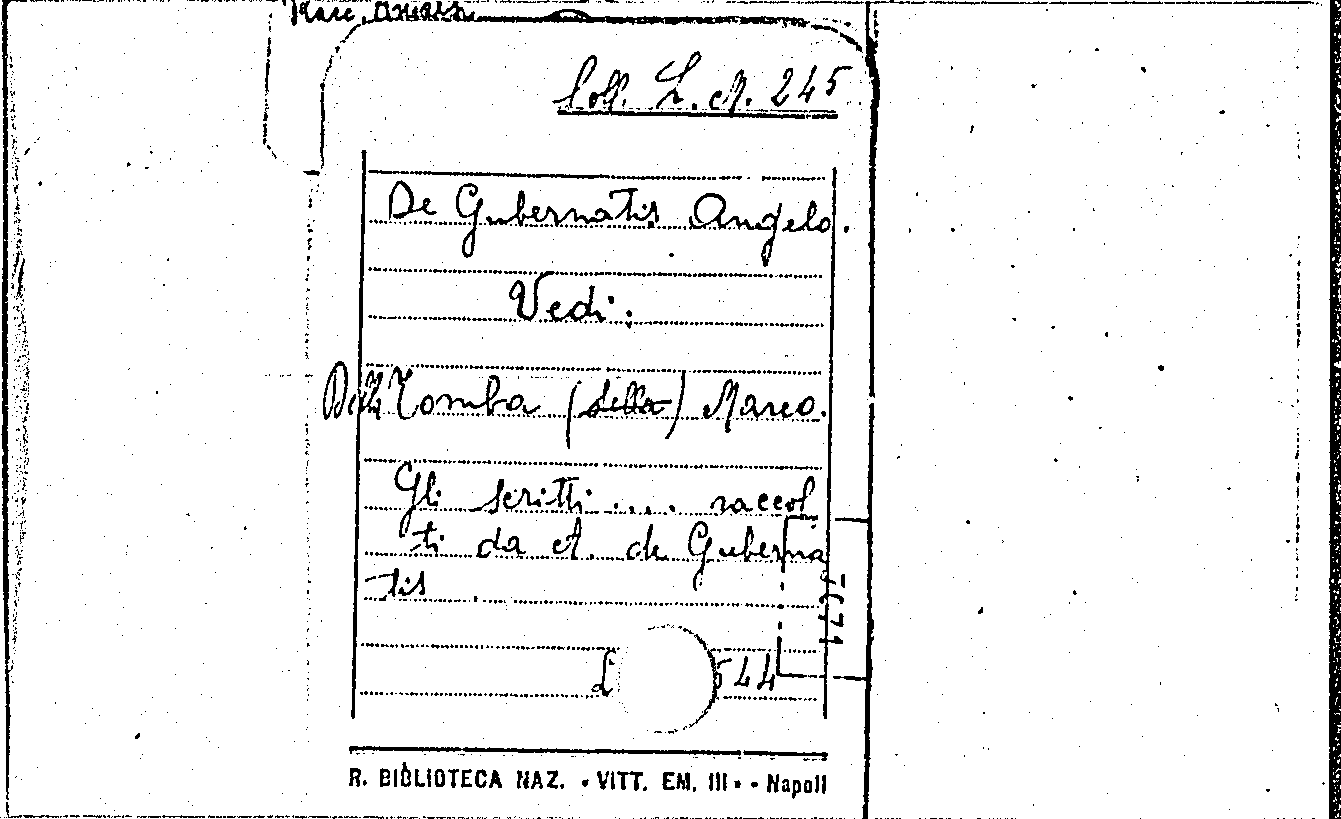 Racc. Amalfi
Coll. L. A. 245
De Gubernatis Angelo.
Vedi:
Della Tomba (della) Marco.
Gli scritti .... raccol
ti da A. de Guberna
tis
544
R. BIBLIOTECA NAZ. - VITT. EM. III - - Napoli